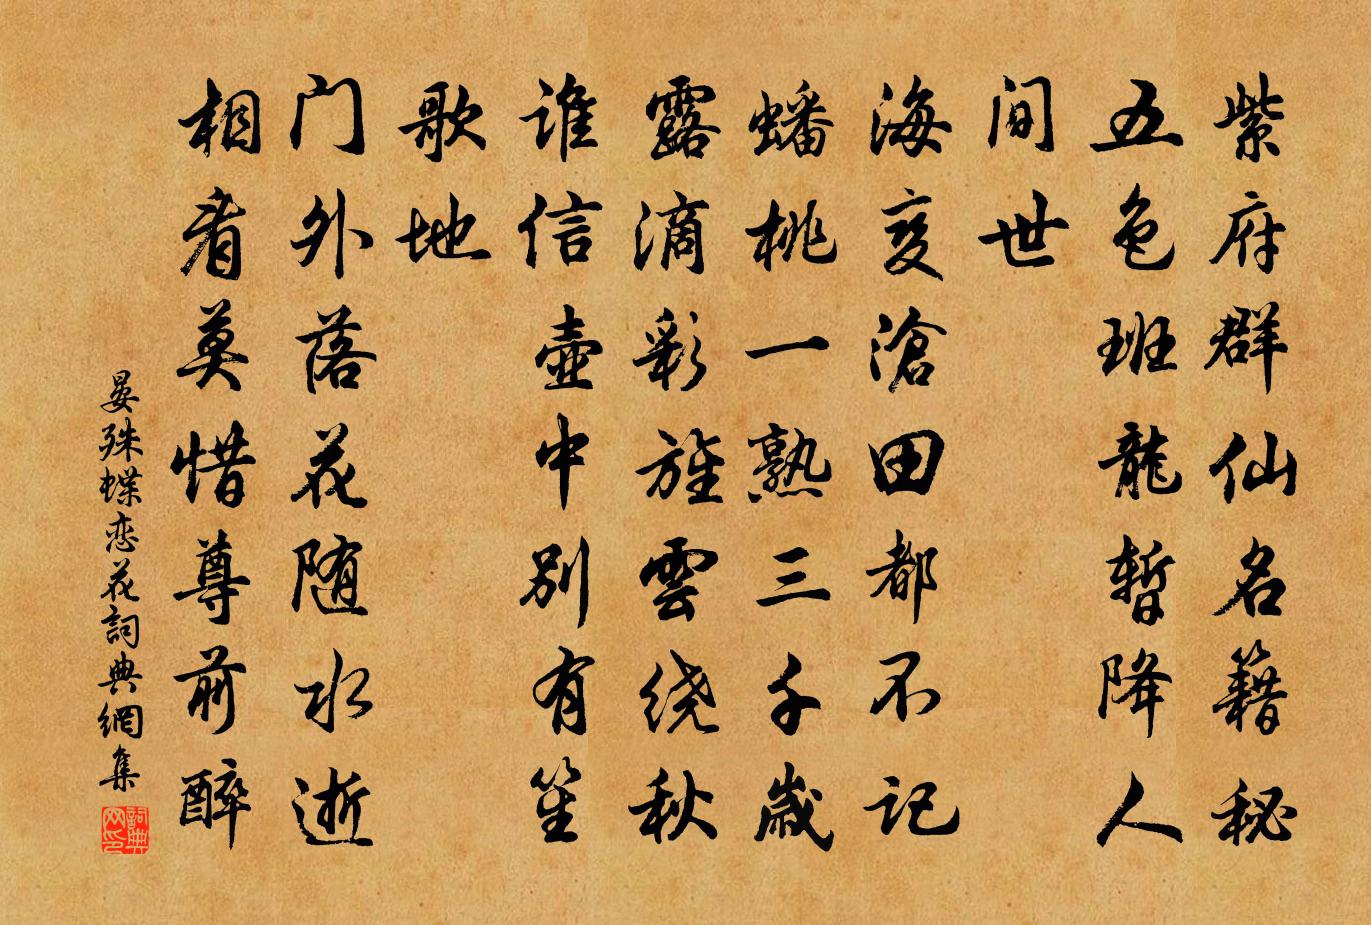 紫府群仙名籍秘
五色班龍暫降人
间世
海变滄田都不记
蟠桃一熟三千歳
露滴彩旌雲绕秋
谁信壺中别有笙
歌地
门外落花随水逝
相看莫惜尊前醉
晏殊蝶恋花詞典網集
詞典网印